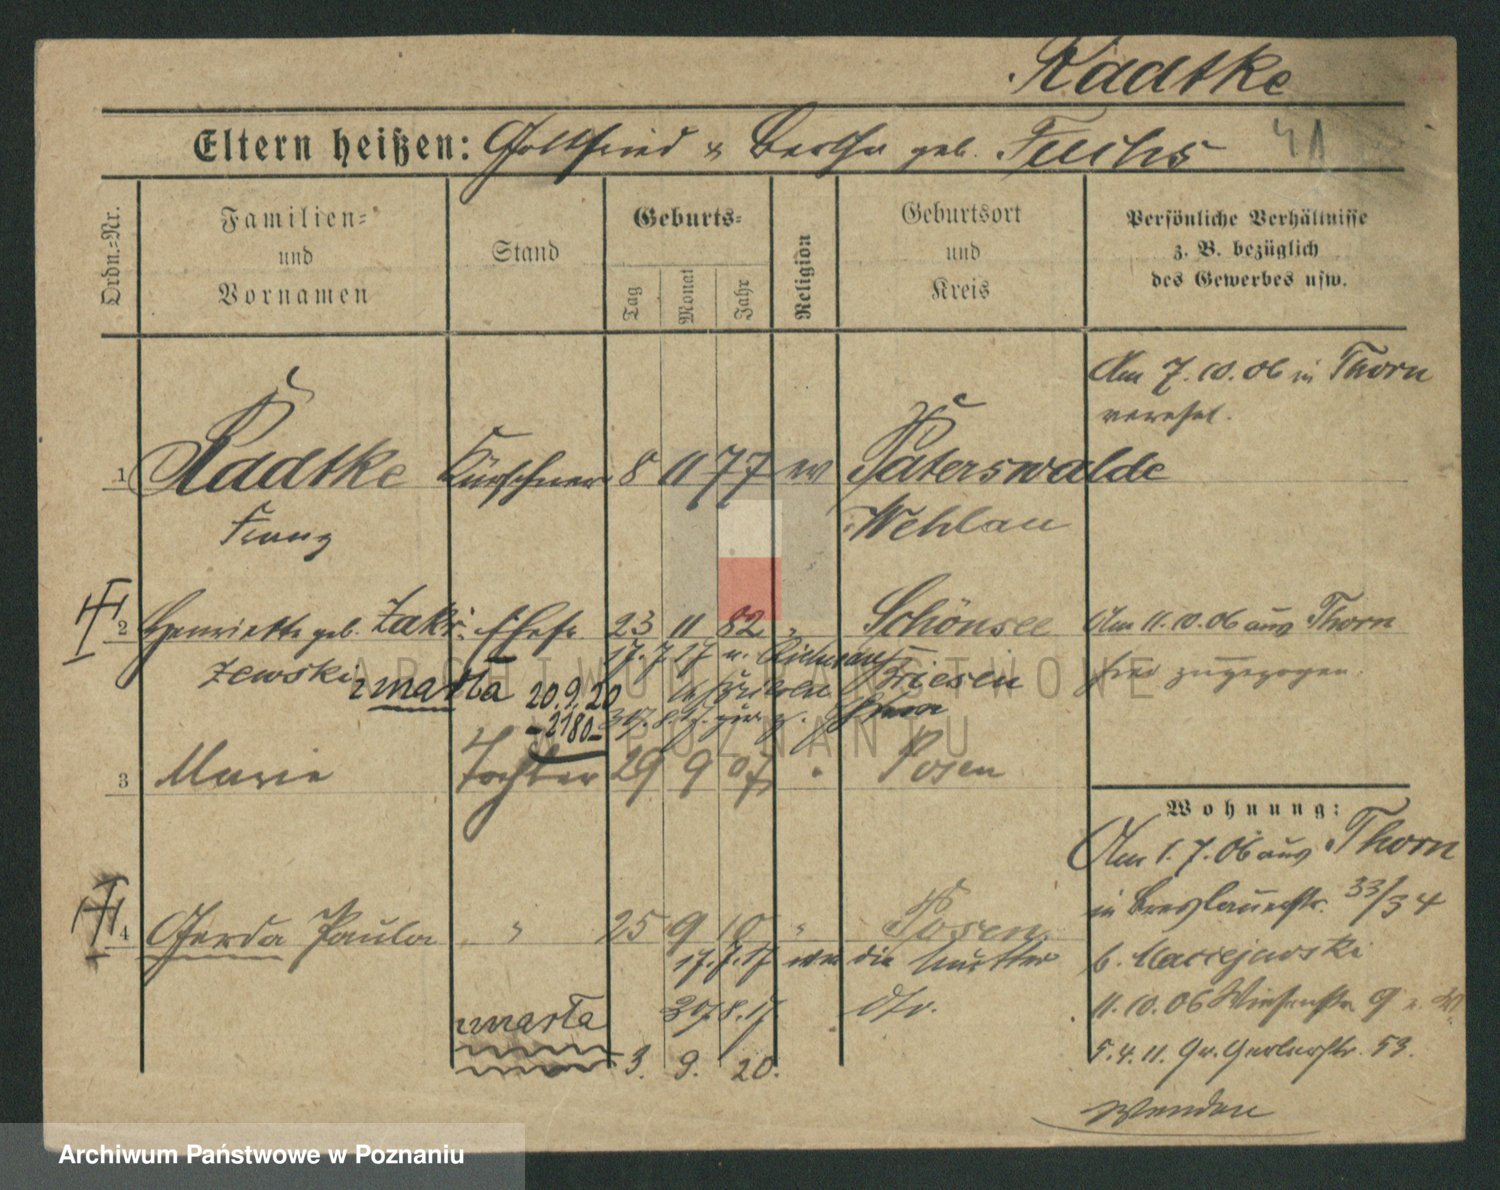 Radtke
Eltern heißen: Gottfried & Bertha geb. Fuchs
41
Ordn.=Nr.
Familien=
und
Vornamen
Stand
Geburts=
Tag
Monat
Jahr
Religion
Geburtsort
und
Kreis
Persönliche Verhältnisse
z. B. bezüglich
des Gewerbes usw.
Am 7.10.06 in Thorn
verehel.
1 Radtke Kürschner 8 11 77 ev Paterswalde
Franz Wehlau
2 Henriette geb. Zakr- Ehefr. 23 11 82 " Schönsee Am 11.10.06 aus Thorn
zewski Briesen hier zugezogen.
17.7.17 n.
zmarła 20.9.20
-2180-
30.8.17. zur
3 Marie Tochter 29 9 07 " Posen
Wohnung:
Am 1.7.06 aus Thorn
in Breslauerstr. 33/34
b. Maciejewski
11.10.06 Wiesenstr. 9
5.4.11. Gr. Gerberstr. 53.
wenden
4 Gerda Paula " 25 9 10 " Posen
17.7.17 wie die Mutter
30.8.17 dto.
zmarła
3. 9. 20.
ARCHIWUM PAŃSTWOWE
W POZNANIU
Archiwum Państwowe w Poznaniu